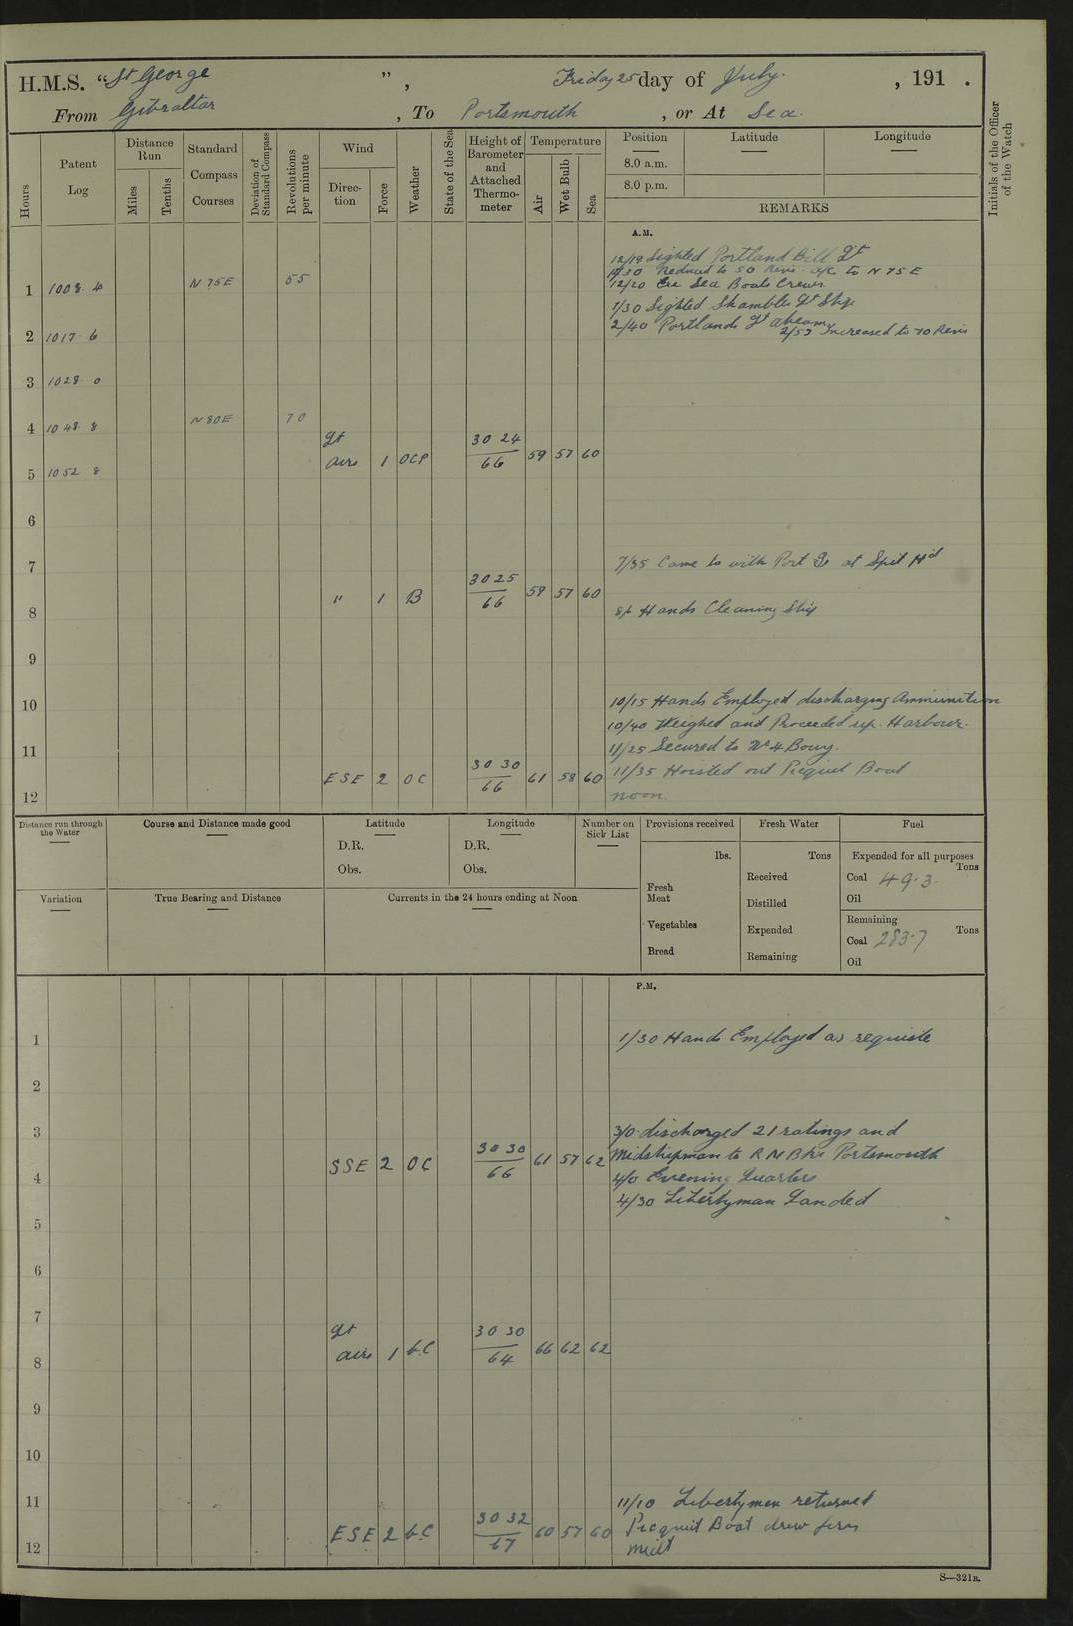 H.M.S. "St George", Friday 25 day of July. , 191 .
From Gibraltar , To Portsmouth , or At Sea.
Hours
Patent Log
Distance Run
Miles
Tenths
Standard Compass Courses
Deviation of Standard Compass
Revolutions per minute
Wind
Direction
Force
Weather
State of the Sea
Height of Barometer and Attached Thermometer
Temperature
Air
Wet Bulb
Sea
Position
Latitude
Longitude
8.0 a.m.
8.0 p.m.
REMARKS
Initials of the Officer of the Watch
A.M.
12/19 Sighted Portland Bill Lt
Reduced to 50 Revs a/c to N 75 E
12/20 Ex Sea Boats Crews
1 1008 4 N 75E 55
1/30 Sighted Shambles Lt Ship
2/40 Portland Lt abeam
2/53 Increased to 70 Revs
2 1017 6
3 1028 0
4 1048 8 N 80E 70
Lt airs 1 OCP 30 24 66 59 57 60
5 1052 8
6
7
7/35 Came to with Port at Spit Hd
" 1 B 30 25 66 59 57 60
8
Hands Cleaning Ship
9
10
10/15 Hands Employed discharging Ammunition
10/40 Weighed and Proceeded up Harbour.
11
11/25 Secured to No 4 Bouy.
ESE 2 OC 30 30 66 61 58 60
11/35 Hoisted out Picquet Boat
12
noon.
Distance run through the Water
Course and Distance made good
Latitude
D.R.
Obs.
Longitude
D.R.
Obs.
Number on Sick List
Provisions received
lbs.
Fresh Meat
Vegetables
Bread
Fresh Water
Tons
Received
Distilled
Expended
Remaining
Fuel
Expended for all purposes
Tons
Coal 49.3
Oil
Remaining
Coal 283.7 Tons
Oil
Variation
True Bearing and Distance
Currents in the 24 hours ending at Noon
P.M.
1
1/30 Hands Employed as requisite
2
3
3/0 discharged 21 ratings and
SSE 2 OC 30 30 66 61 57 62
Midshipman to R N Bks Portsmouth
4
4/0 Evening Quarters
4/30 Libertyman Landed
5
6
7
Lt airs 1 bC 30 30 64 66 62 62
8
9
10
11
11/10 Libertymen returned
ESE 2 bC 30 32 67 60 57 60
Picquit Boat drew fires
12
midt
S—321B.